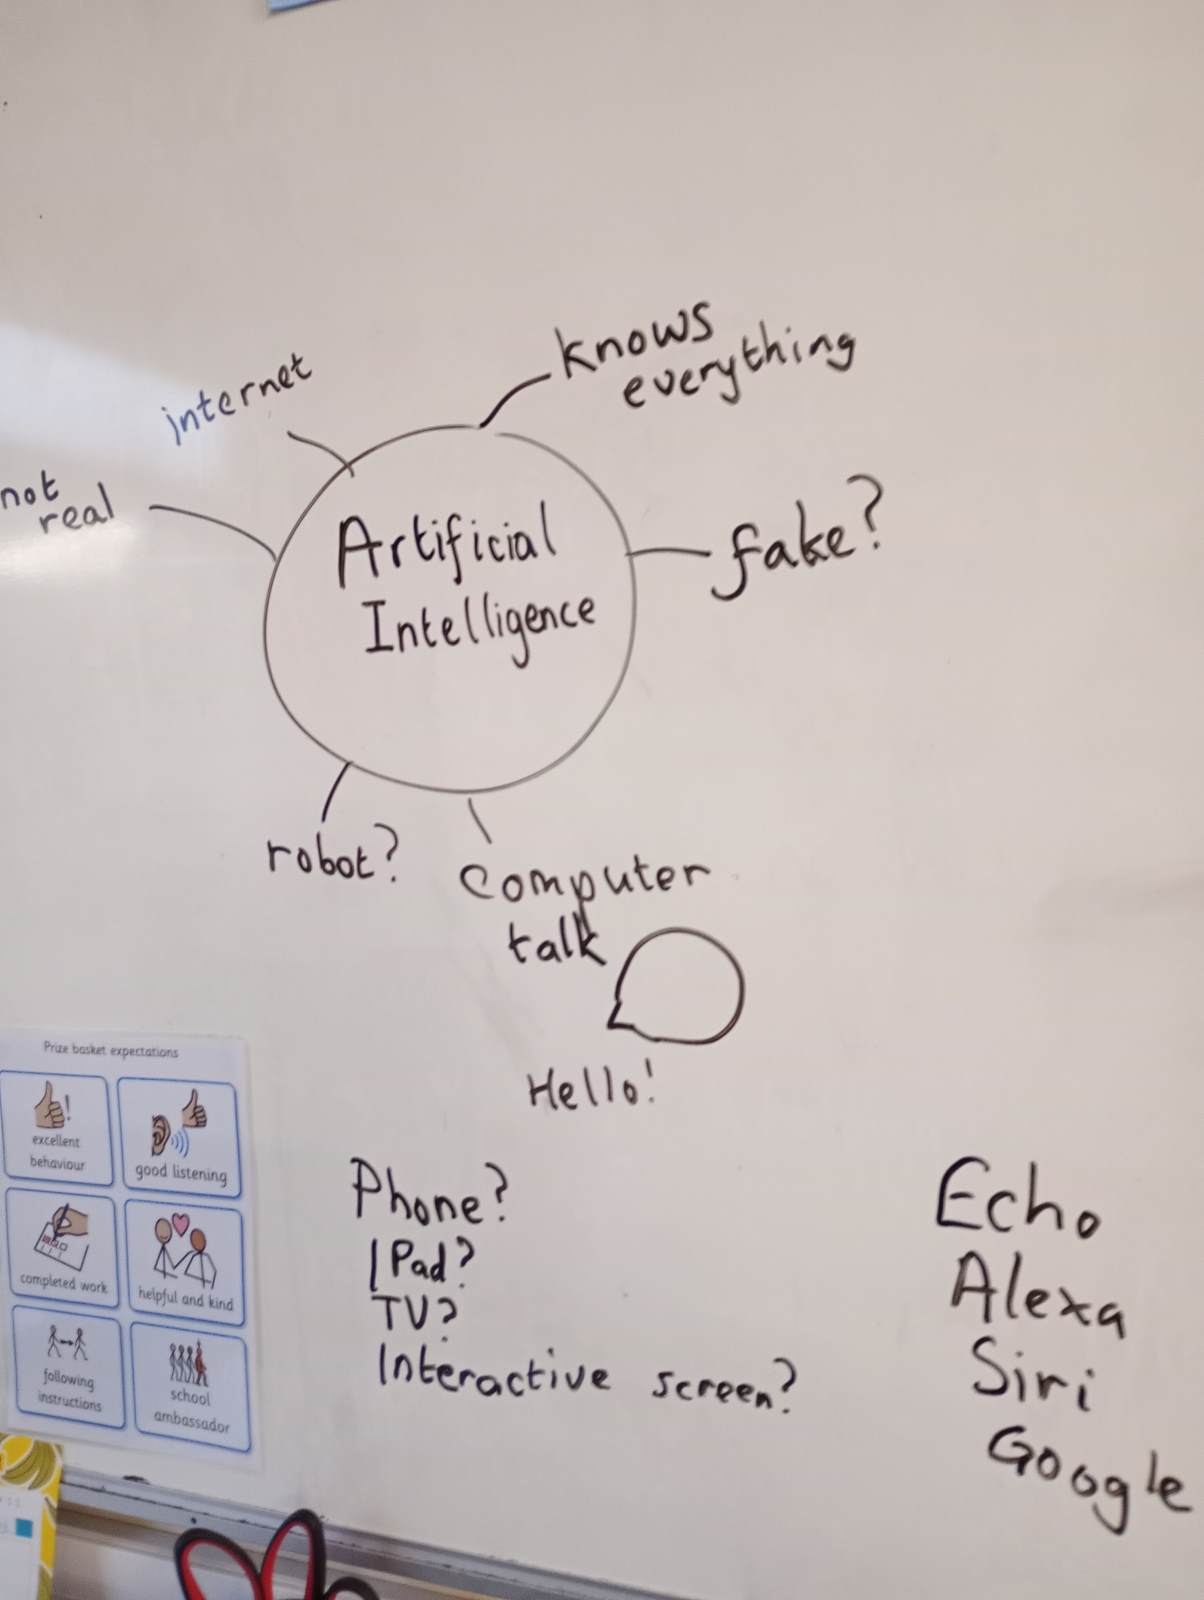 knows
everything
internet
not
real
fake?
Artificial
Intelligence
robot?
computer
talk
Hello!
Phone?
IPad?
TV?
Interactive screen?
Echo
Alexa
Siri
Google
Prize basket expectations
excellent
behaviour
good listening
completed work
helpful and kind
following
instructions
school
ambassador